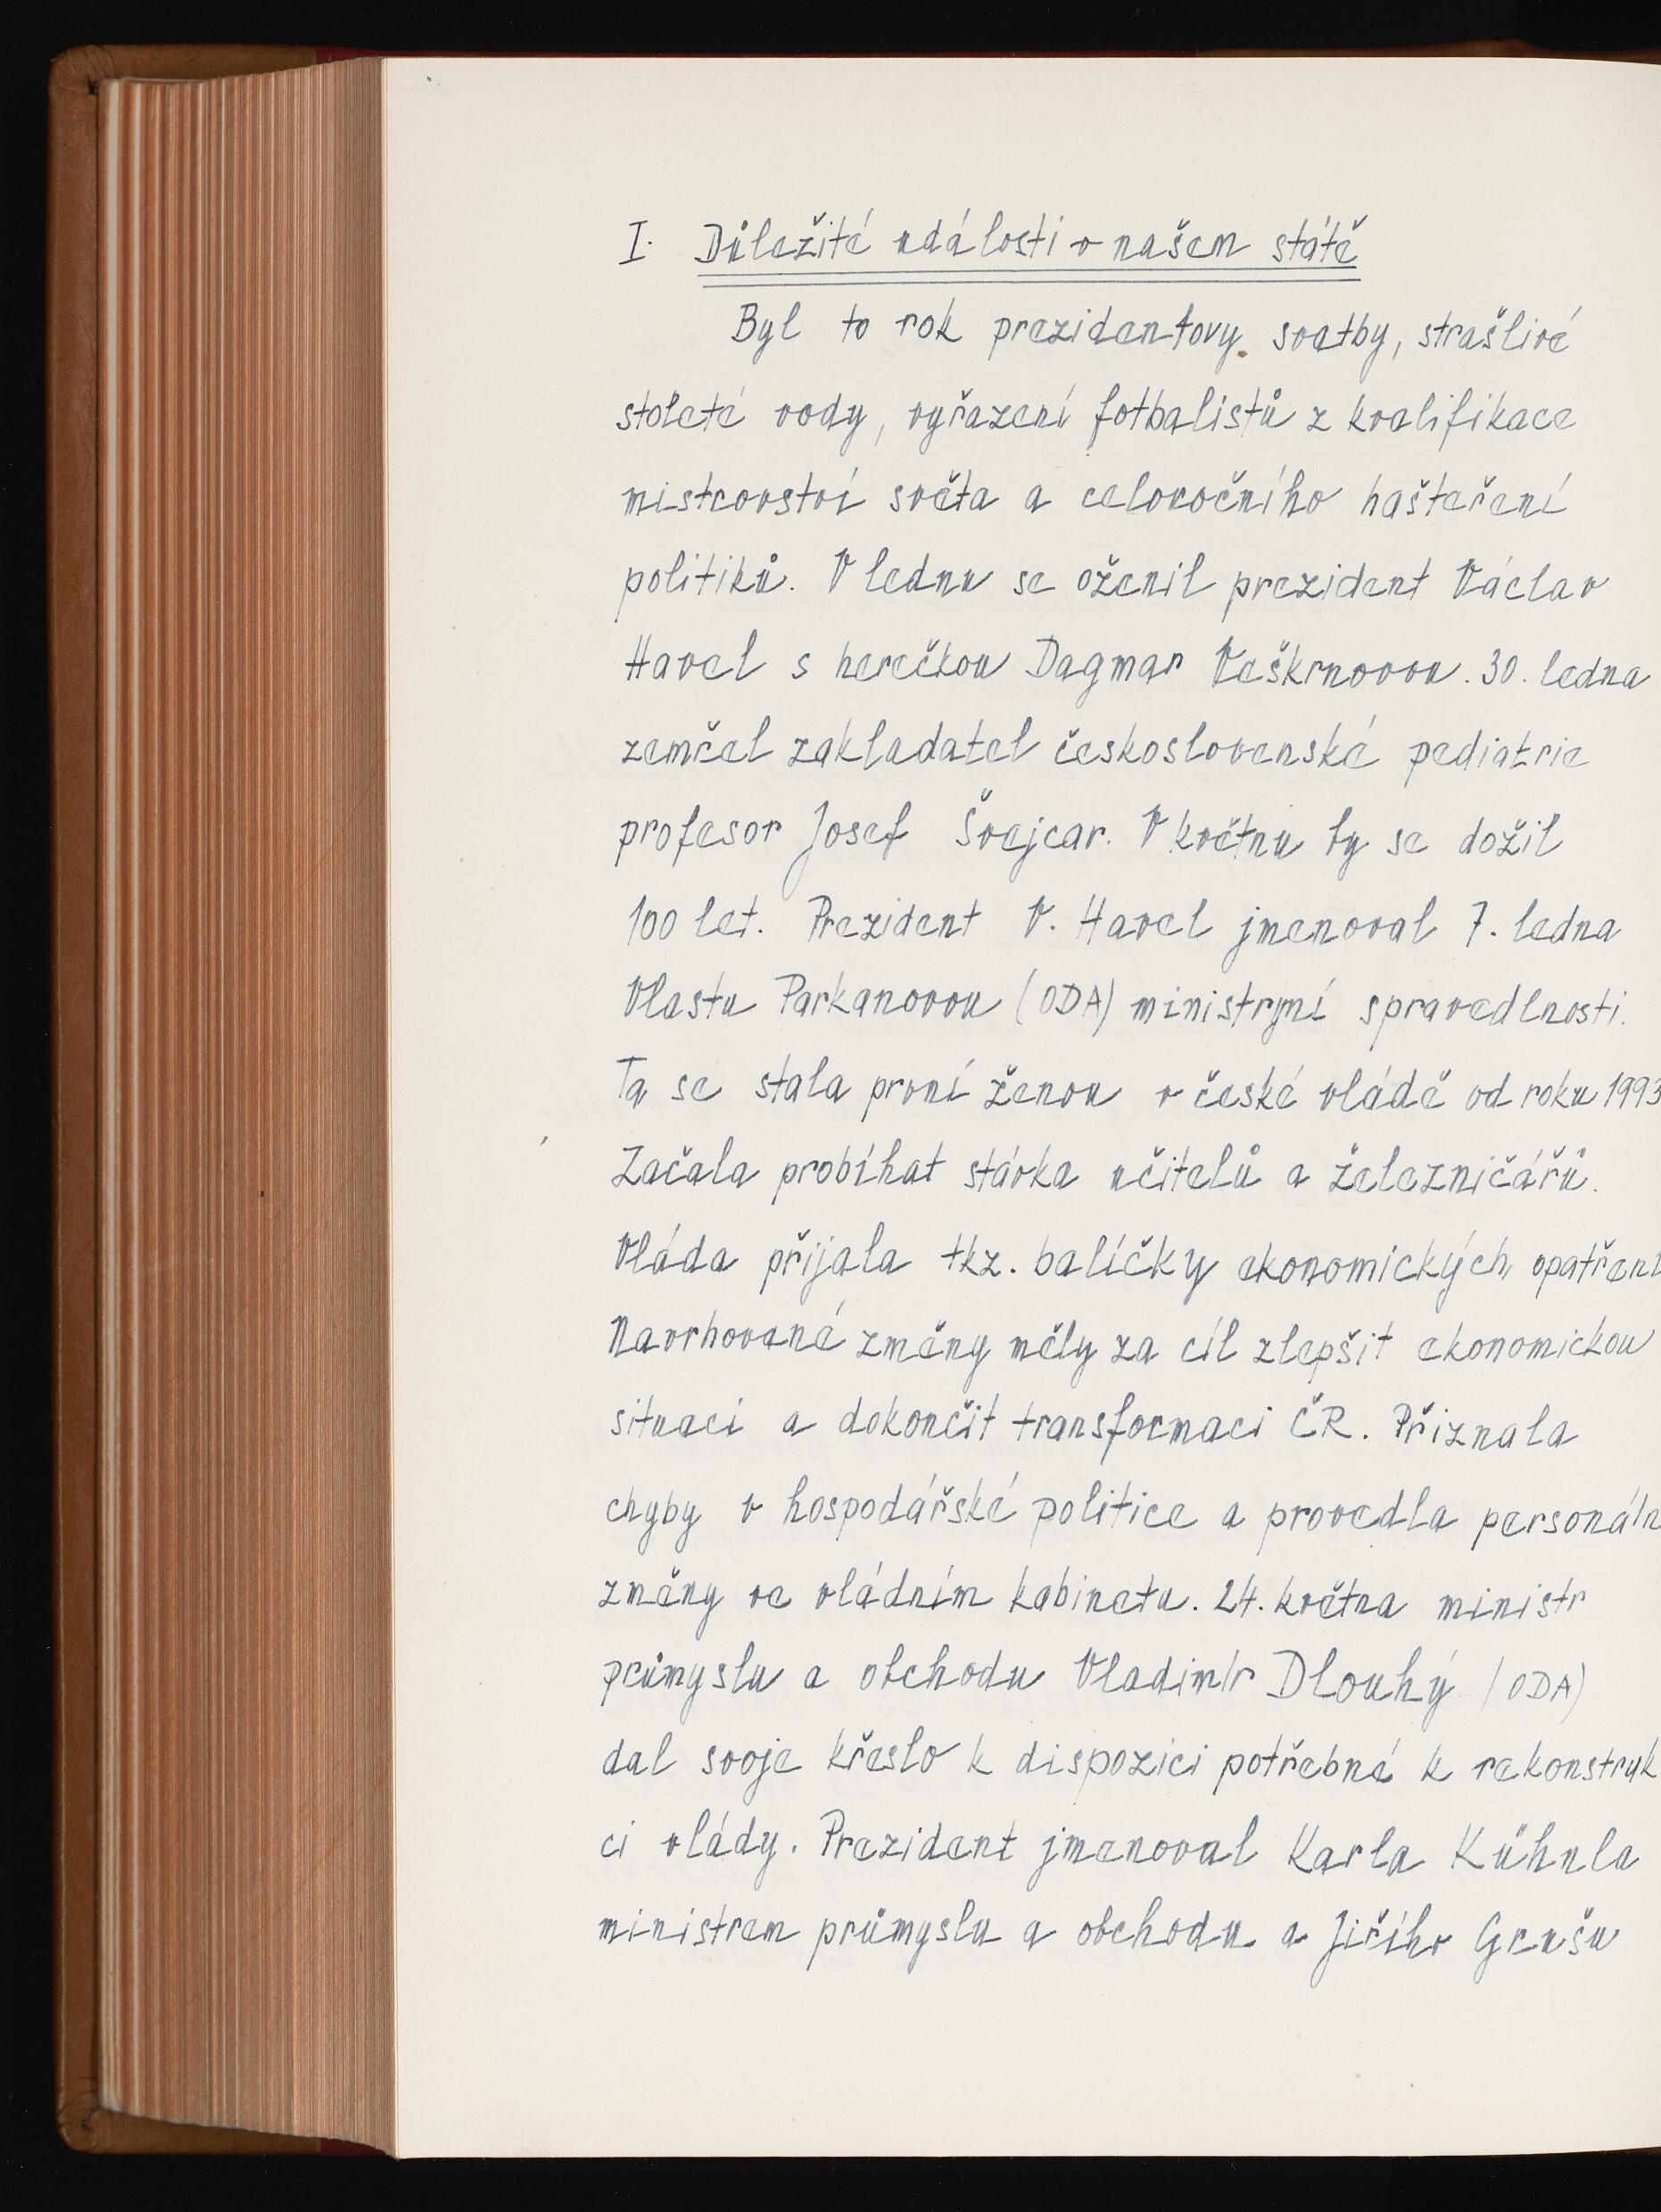 I. Důležité události v našem státě
Byl to rok prezidentovy svatby, strašlivé
stoleté vody, vyřazení fotbalistů z kvalifikace
mistrovství světa a celoročního hašteření
politiků. V lednu se oženil prezident Václav
Havel s herečkou Dagmar Veškrnovou. 30. ledna
zemřel zakladatel československé pediatrie
profesor Josef Švejcar. V květnu by se dožil
100 let. Prezident V. Havel jmenoval 7. ledna
Vlastu Parkanovou (ODA) ministryní spravedlnosti.
Ta se stala první ženou v české vládě od roku 1993
Začala probíhat stávka učitelů a železničářů.
Vláda přijala tkz. balíčky ekonomických opatření
Navrhované změny měly za cíl zlepšit ekonomickou
situaci a dokončit transformaci ČR. Přiznala
chyby v hospodářské politice a provedla personáln
změny ve vládním kabinetu. 24. května ministr
průmyslu a obchodu Vladimír Dlouhý (ODA)
dal svoje křeslo k dispozici potřebné k rekonstruk
ci vlády. Prezident jmenoval Karla Kühnla
ministrem průmyslu a obchodu a Jiřího Grušu